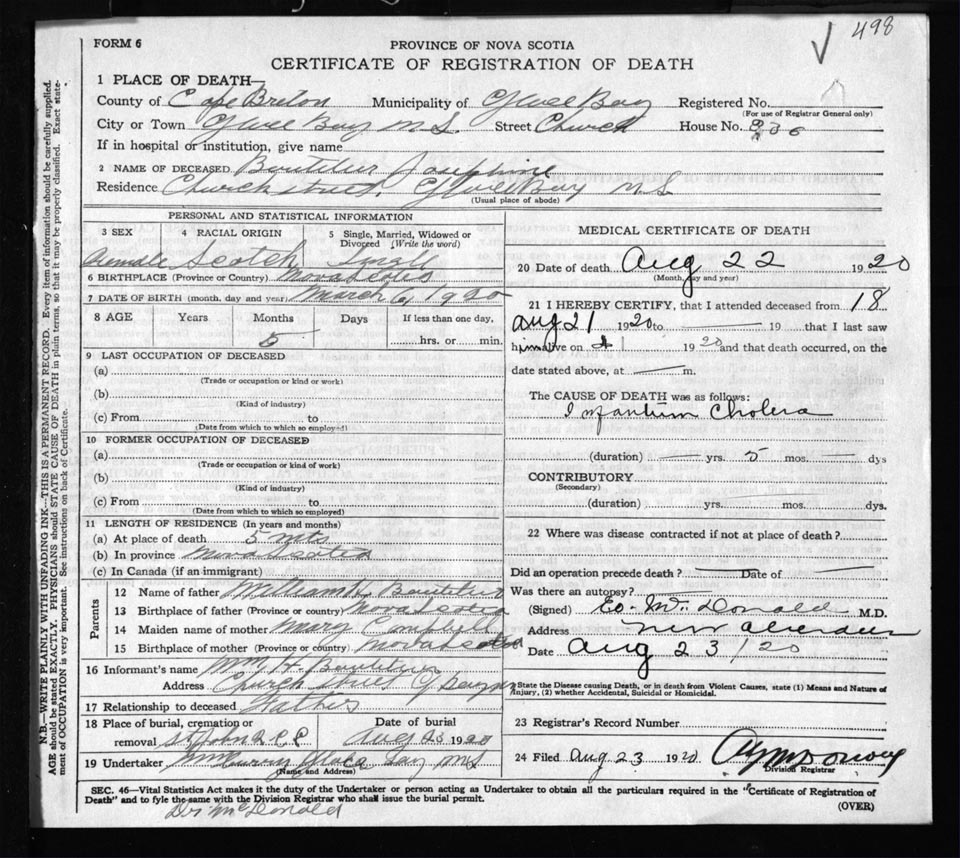 498
FORM 6
PROVINCE OF NOVA SCOTIA
CERTIFICATE OF REGISTRATION OF DEATH
1 PLACE OF DEATH—
County of Cape Breton Municipality of Glace Bay Registered No.
(For use of Registrar General only)
City or Town Glace Bay N.S. Street Church House No.
If in hospital or institution, give name
2 NAME OF DECEASED Boutilier Josephine
Residence Church street Glace Bay N.S.
(Usual place of abode)
PERSONAL AND STATISTICAL INFORMATION
3 SEX 4 RACIAL ORIGIN 5 Single, Married, Widowed or Divorced (Write the word)
Female Scotch Single
6 BIRTHPLACE (Province or Country) Nova Scotia
7 DATE OF BIRTH (month, day and year) March 6, 1920
8 AGE Years Months Days If less than one day,
5 hrs. or min.
9 LAST OCCUPATION OF DECEASED
(a)
(Trade or occupation or kind or work)
(b)
(Kind of industry)
(c) From to
(Date from which to which so employed)
10 FORMER OCCUPATION OF DECEASED
(a)
(Trade or occupation or kind of work)
(b)
(Kind of industry)
(c) From to
(Date from which to which so employed)
11 LENGTH OF RESIDENCE (In years and months)
(a) At place of death 5 mts
(b) In province Nova Scotia
(c) In Canada (if an immigrant)
Parents
12 Name of father William H. Boutilier
13 Birthplace of father (Province or Country) Nova Scotia
14 Maiden name of mother Mary Campbell
15 Birthplace of mother (Province or Country) Nova Scotia
16 Informant's name Wm H. Boutilier
Address Church Street G Bay
17 Relationship to deceased Father
18 Place of burial, cremation or removal St John Date of burial Aug 23 1920
19 Undertaker Glace Bay N.S.
(Name and Address)
MEDICAL CERTIFICATE OF DEATH
20 Date of death Aug 22 1920
(Month, day and year)
21 I HEREBY CERTIFY, that I attended deceased from 18
Aug 21 1920 to 19 that I last saw
him alive on 21 1920 and that death occurred, on the
date stated above, at m.
The CAUSE OF DEATH was as follows:
Infantum Cholera
(duration) yrs. 5 mos. dys
CONTRIBUTORY
(Secondary)
(duration) yrs. mos. dys.
22 Where was disease contracted if not at place of death?
Did an operation precede death? Date of
Was there an autopsy?
(Signed) McDonald M.D.
Address New Aberdeen
Date Aug 23/20
State the Disease causing Death, or in death from Violent Causes, state (1) Means and Nature of
Injury, (2) whether Accidental, Suicidal or Homicidal.
23 Registrar's Record Number
24 Filed Aug 23 1920
Division Registrar
SEC. 46—Vital Statistics Act makes it the duty of the Undertaker or person acting as Undertaker to obtain all the particulars required in the "Certificate of Registration of
Death" and to fyle the same with the Division Registrar who shall issue the burial permit.
(OVER)
Dr. McDonald
N.B.—WRITE PLAINLY WITH UNFADING INK—THIS IS A PERMANENT RECORD. Every item of information should be carefully supplied.
AGE should be stated EXACTLY. PHYSICIANS should STATE CAUSE OF DEATH in plain terms, so that it may be properly classified. Exact statement of OCCUPATION is very important. See instructions on back of Certificate.